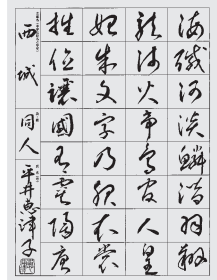 海鹹河淡鱗潛羽翔
龍師火帝鳥官人皇
始制文字乃服衣裳
推位讓國有虞陶唐
西城
同人
平井恵津子